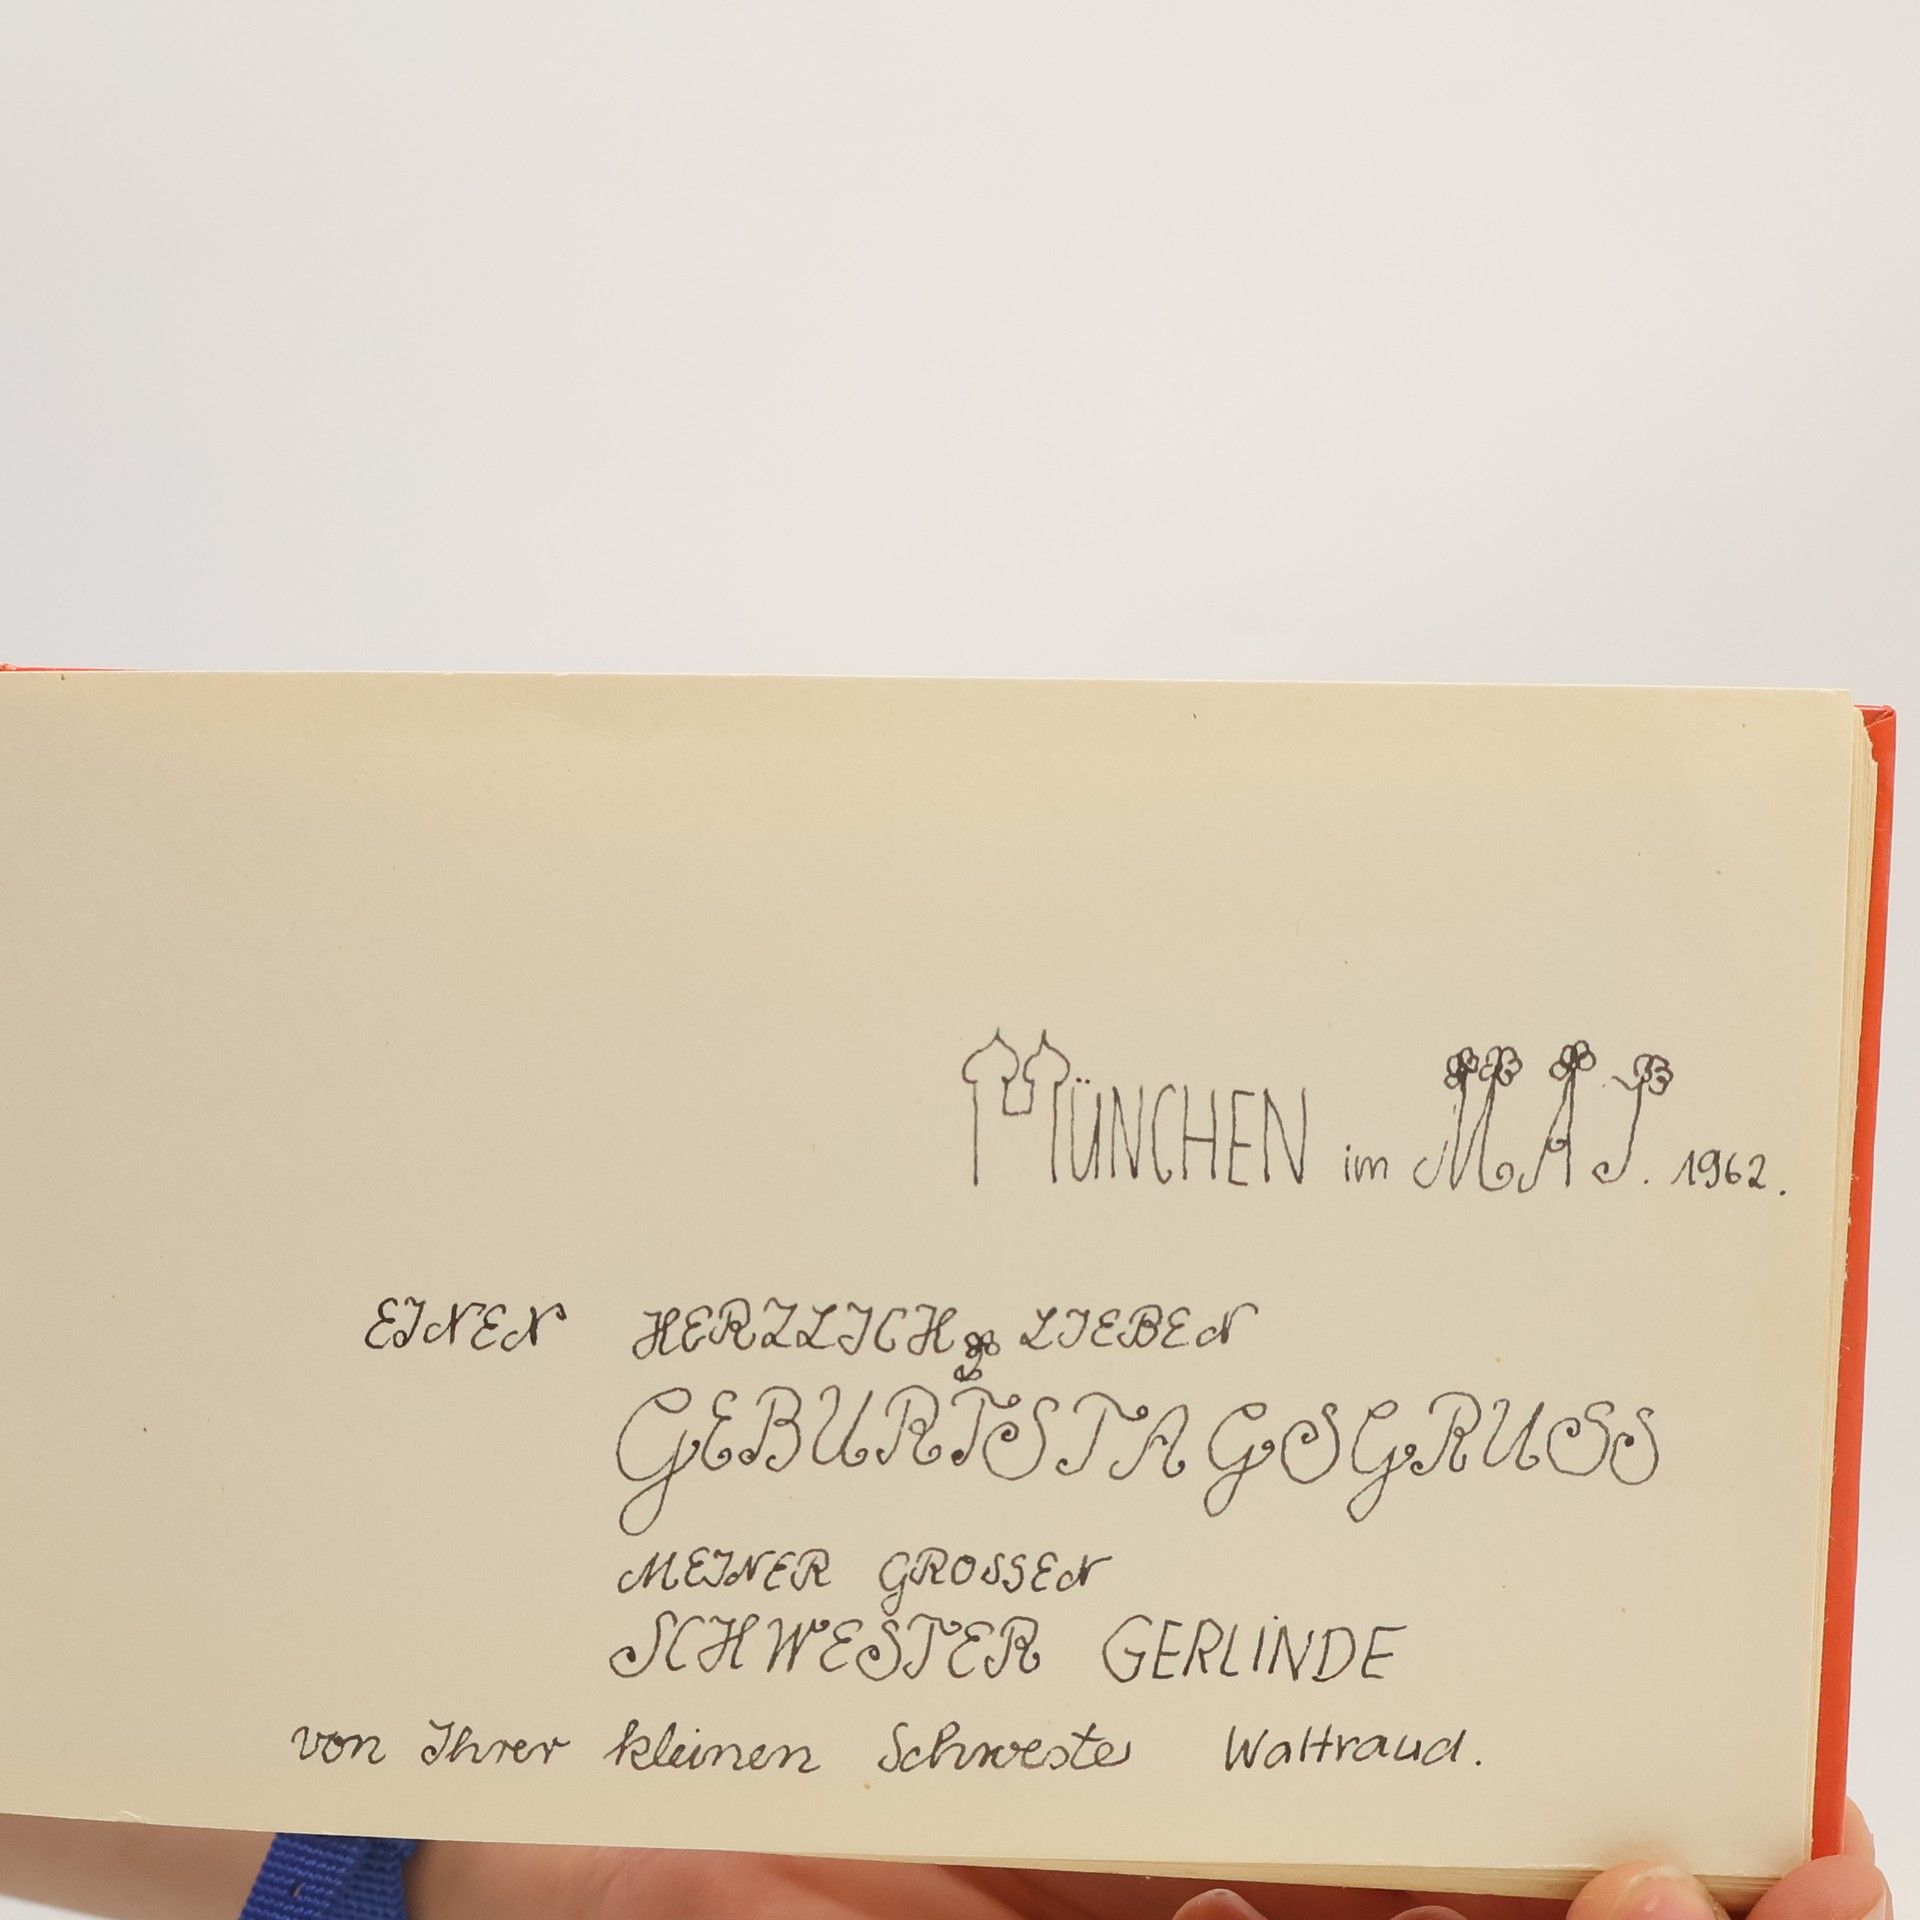 MÜNCHEN im MAI. 1962.
EINEN HERZLICH LIEBEN
GEBURTSTAGSGRUSS
MEINER GROSSEN
SCHWESTER GERLINDE
von Ihrer kleinen Schwester Waltraud.